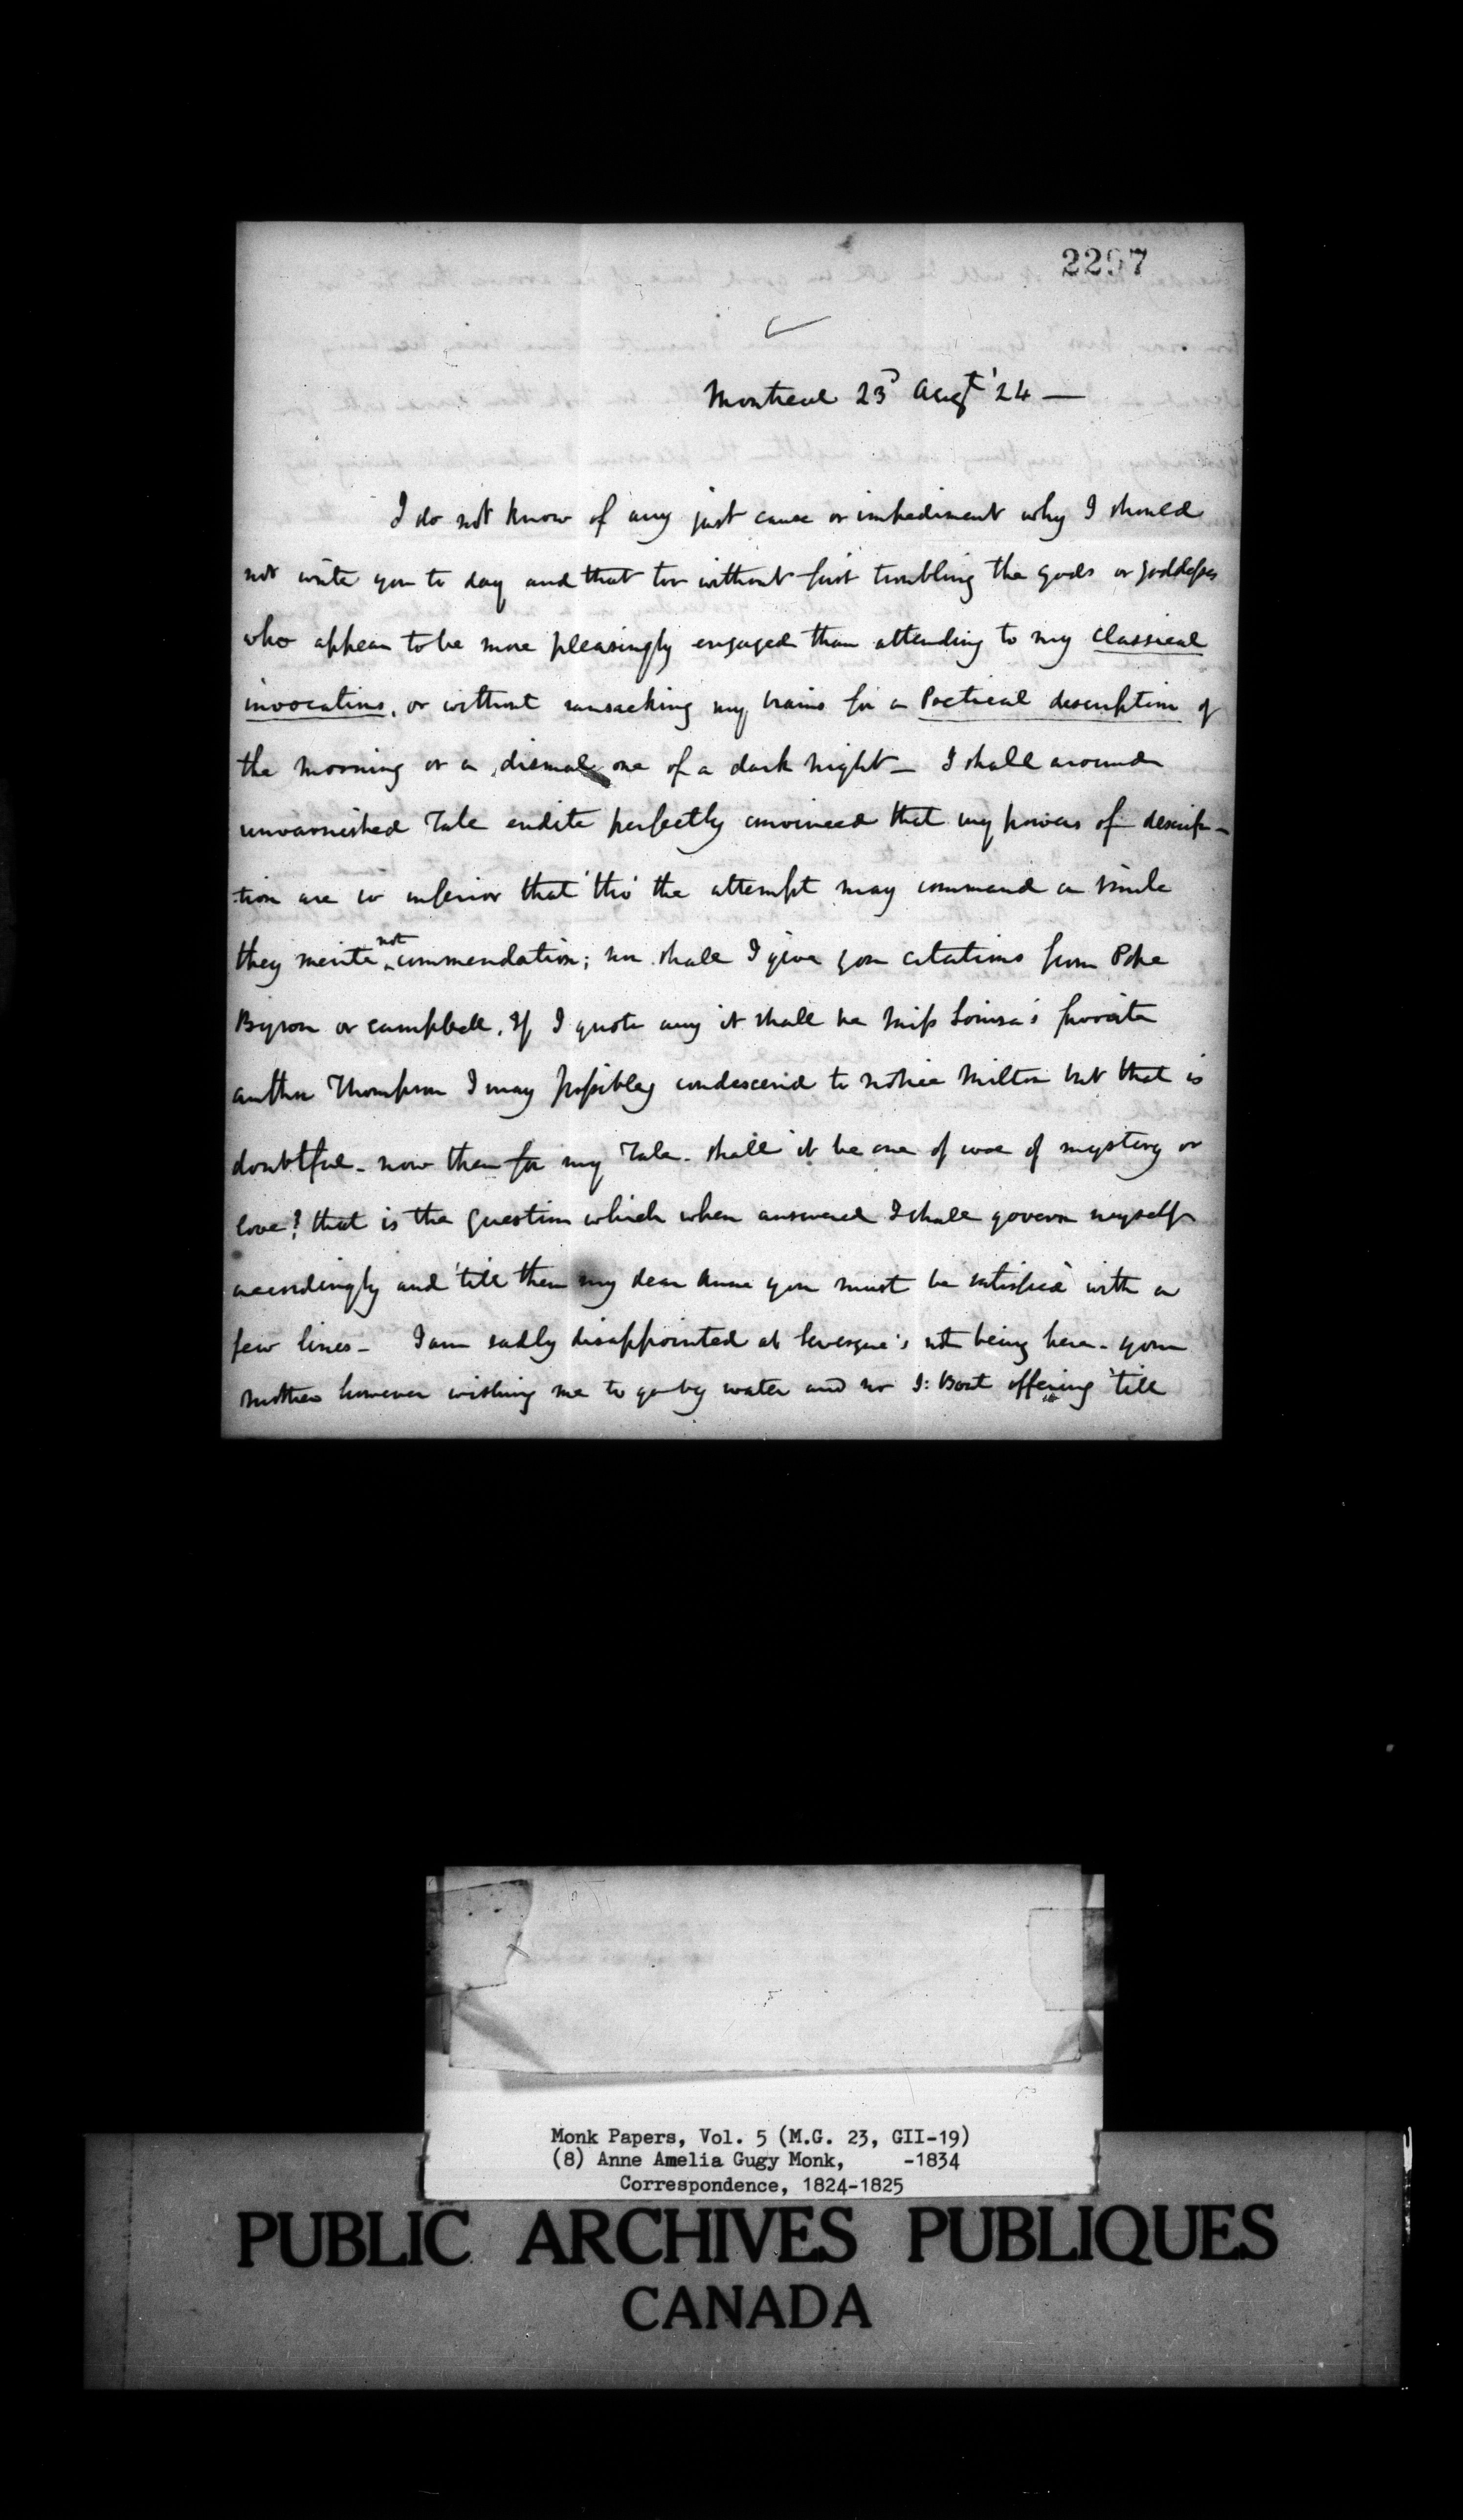 2297
Montreal 23d Augt '24 —
I do not know of any just cause or impediment why I should
not write you to day and that too without first troubling the gods or goddesses
who appear to be more pleasingly engaged than attending to my classical
invocations, or without ransacking my brains for a Poetical description of
the morning or a dismal one of a dark night — I shall a round
unvarnished Tale endite perfectly convinced that my powers of descrip-
-tion are so inferior that 'tho' the attempt may command a smile
they merite not commendation; nor shall I give you citations from Pope
Byron or Campbell, If I quote any it shall be Miss Louisa's favorite
author Thompson I may possibly condescend to notice Milton but that is
doubtful - now then for my Tale - shall it be one of woe of mystery or
love? that is the question which when answered I shall govern myself
accordingly and 'till then my dear Anne you must be satisfied with a
few lines — I am sadly disappointed at Levesque's not being here - your
Mother however wishing me to go by water and no S: Boat offering 'till
Monk Papers, Vol. 5 (M.G. 23, GII-19)
(8) Anne Amelia Gugy Monk, -1834
Correspondence, 1824-1825
PUBLIC ARCHIVES PUBLIQUES
CANADA